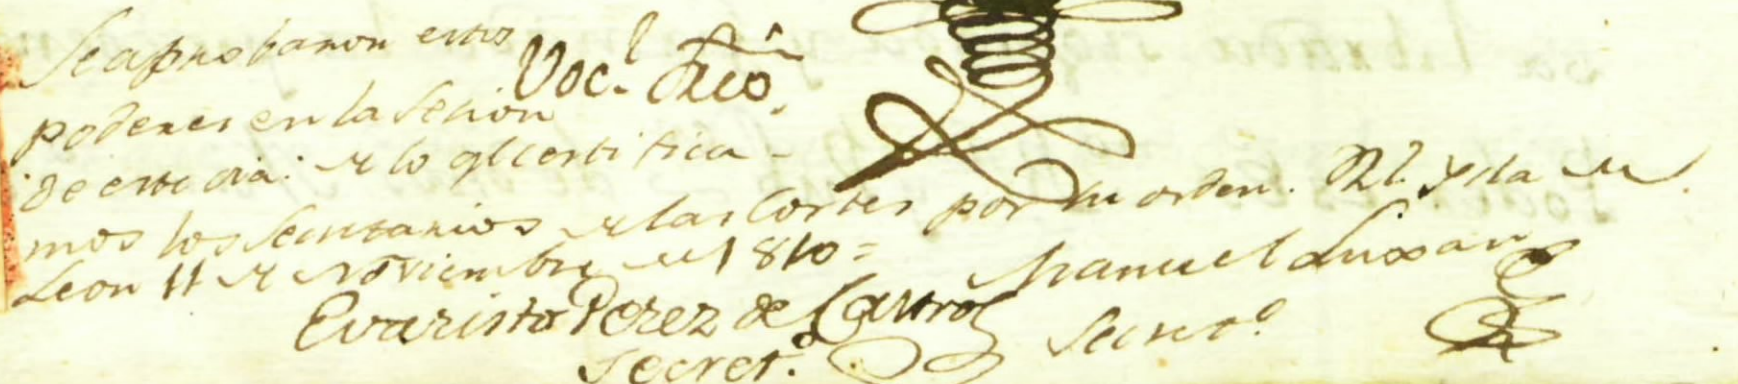 Se aprobaron estos
Voc.l Srio.
poderes en la sesion
de este dia: de lo q.e certifica-
mos los Secretarios de las Cortes por su orden. Rl. Ysla de
Leon 11 de Noviembre de 1810=
Manuel Luxan
Evaristo Perez de Castro
Secret.o
Secret.o